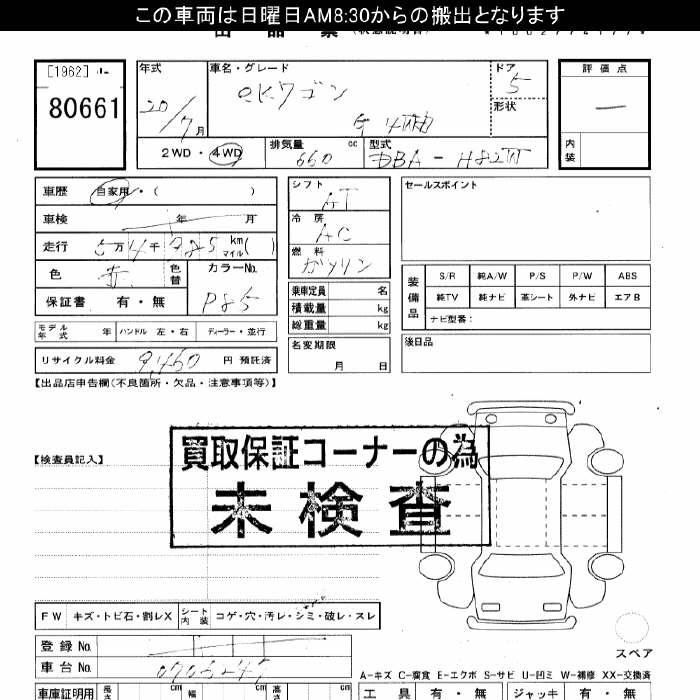 この車両は日曜日AM8:30からの搬出となります
[1962]
80661
年式
20/7月
車名・グレード
eKワゴン
G 4WD
ドア
5
形状
評価点
—
内装
2WD・4WD
排気量
660 cc
型式
DBA - H82W
車歴 自家用・( )
車検 年 月
走行 5万4千985 km マイル( )
色 赤 色替
カラーNo.
P85
保証書 有・無
シフト
AT
冷房
AC
燃料
ガソリン
乗車定員 名
積載量 kg
総重量 kg
名変期限
月 日
セールスポイント
装備品
S/R 純A/W P/S P/W ABS
純TV 純ナビ 革シート 外ナビ エアB
ナビ型番:
後日品
モデル年式 年 ハンドル 左・右 ディーラー・並行
リサイクル料金 9,460 円 預託済
【出品店申告欄(不良箇所・欠品・注意事項等)】
買取保証コーナーの為
未検査
【検査員記入】
FW キズ・トビ石・割レX シート内装 コゲ・穴・汚レ・シミ・破レ・スレ
スペア
登録No.
車台No.
A-キズ C-腐食 E-エクボ S-サビ U-凹ミ W-補修 XX-交換済
車庫証明用 長さ cm 幅 cm 高さ cm
工具 有・無 ジャッキ 有・無